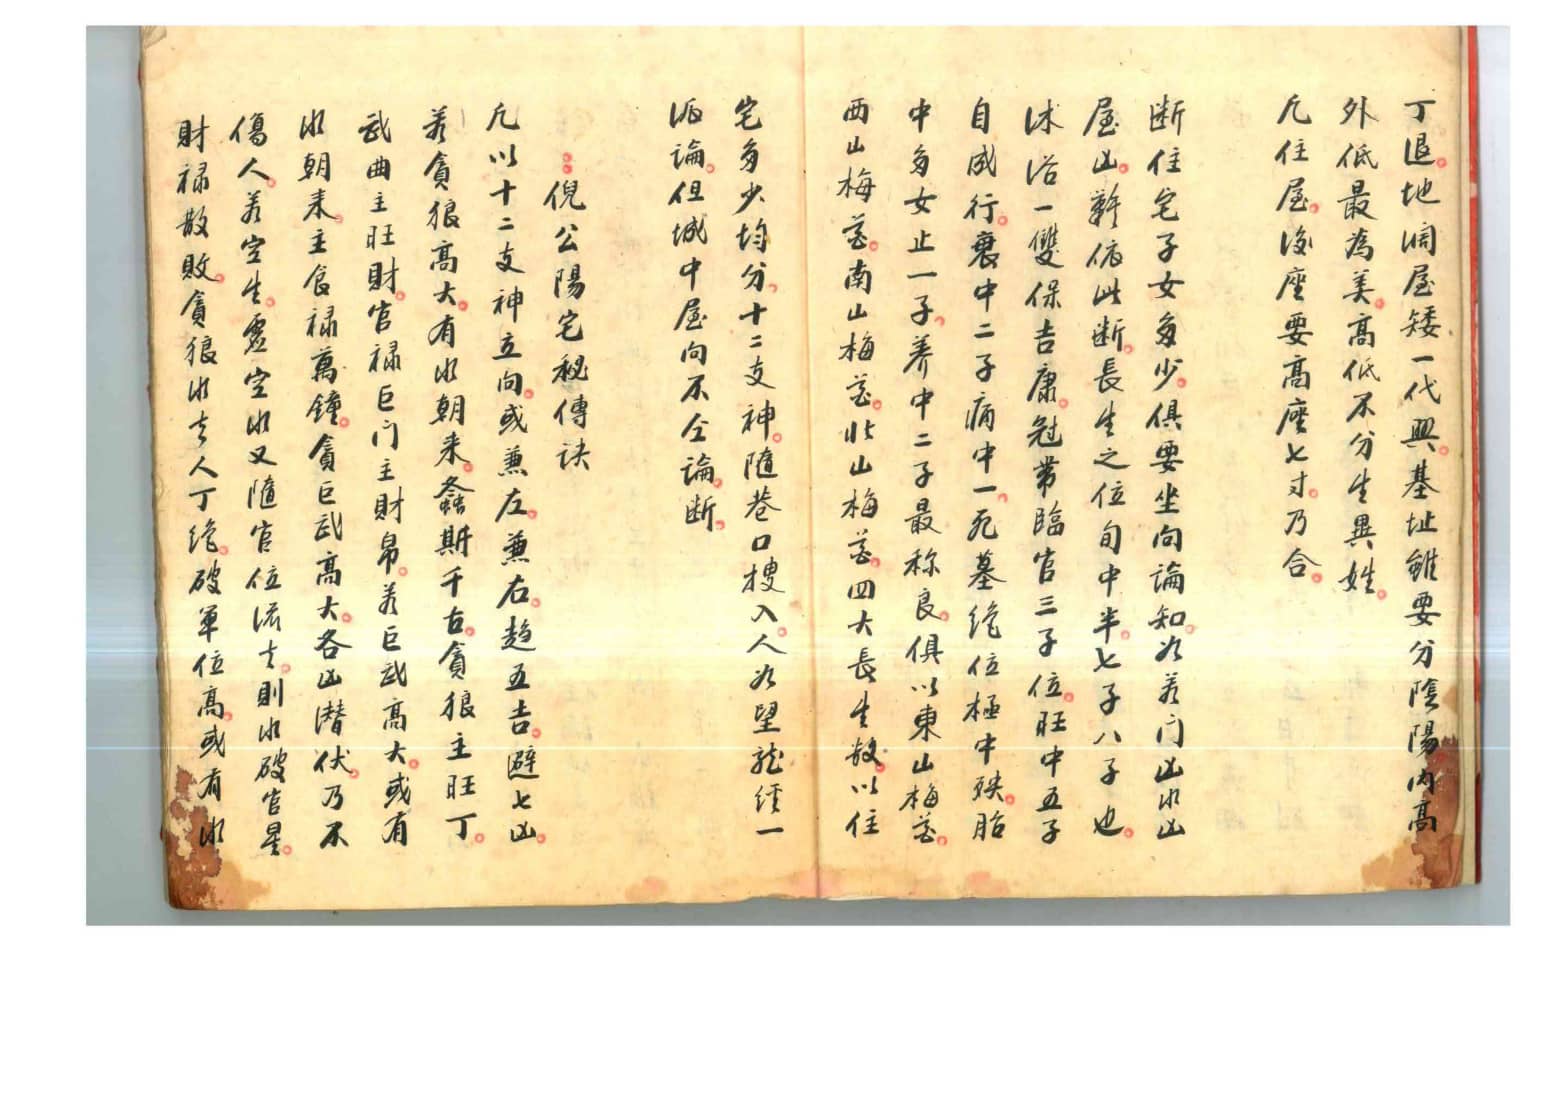 丁退。地濶屋矮一代興。基址雖要分陰陽内高
外低最為美。高低不分生異姓。
凢住屋。後座要高座七寸。乃合。
断住宅子女多少。俱要坐向論知。必若门凶水凶
屋凶。依此断。長生之位旬中半。七子八子也。
沐浴一雙保吉康。冠带臨官三子位。旺中五子
自成行。衰中二子病中一。死墓絶位極中殃。胎
中多女止一子。養中二子最称良。俱以東山梅花。
西山梅花。南山梅花。北山梅花。四大長生数。以住
宅多少均分。十二支神。隨巷口搜入。人必望龍經一
派論。但城中屋向不仝論。断。
倪公陽宅秘傳訣
凢以十二支神立向。或兼左。兼右。趋五吉。避七凶。
若貪狼高大。有水朝来。螽斯千古。貪狼主旺丁。
武曲主旺財。官禄巨门主財帛。若巨武高大。或有
水朝来。主食禄萬鐘。貪巨武高大。各凶潜伏。乃不
傷人。若空生。虚空水又隨官位流去。則水破官星。
財禄散敗。貪狼水去人丁絶。破軍位高。或有水